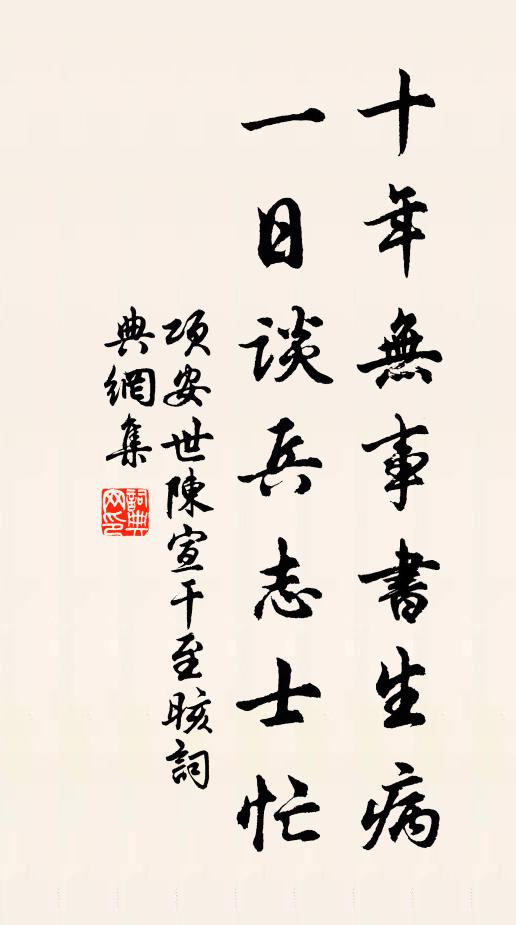 十年無事書生病
一日談兵志士忙
項安世陳宣干至眩詞
典網集
詞典
网印